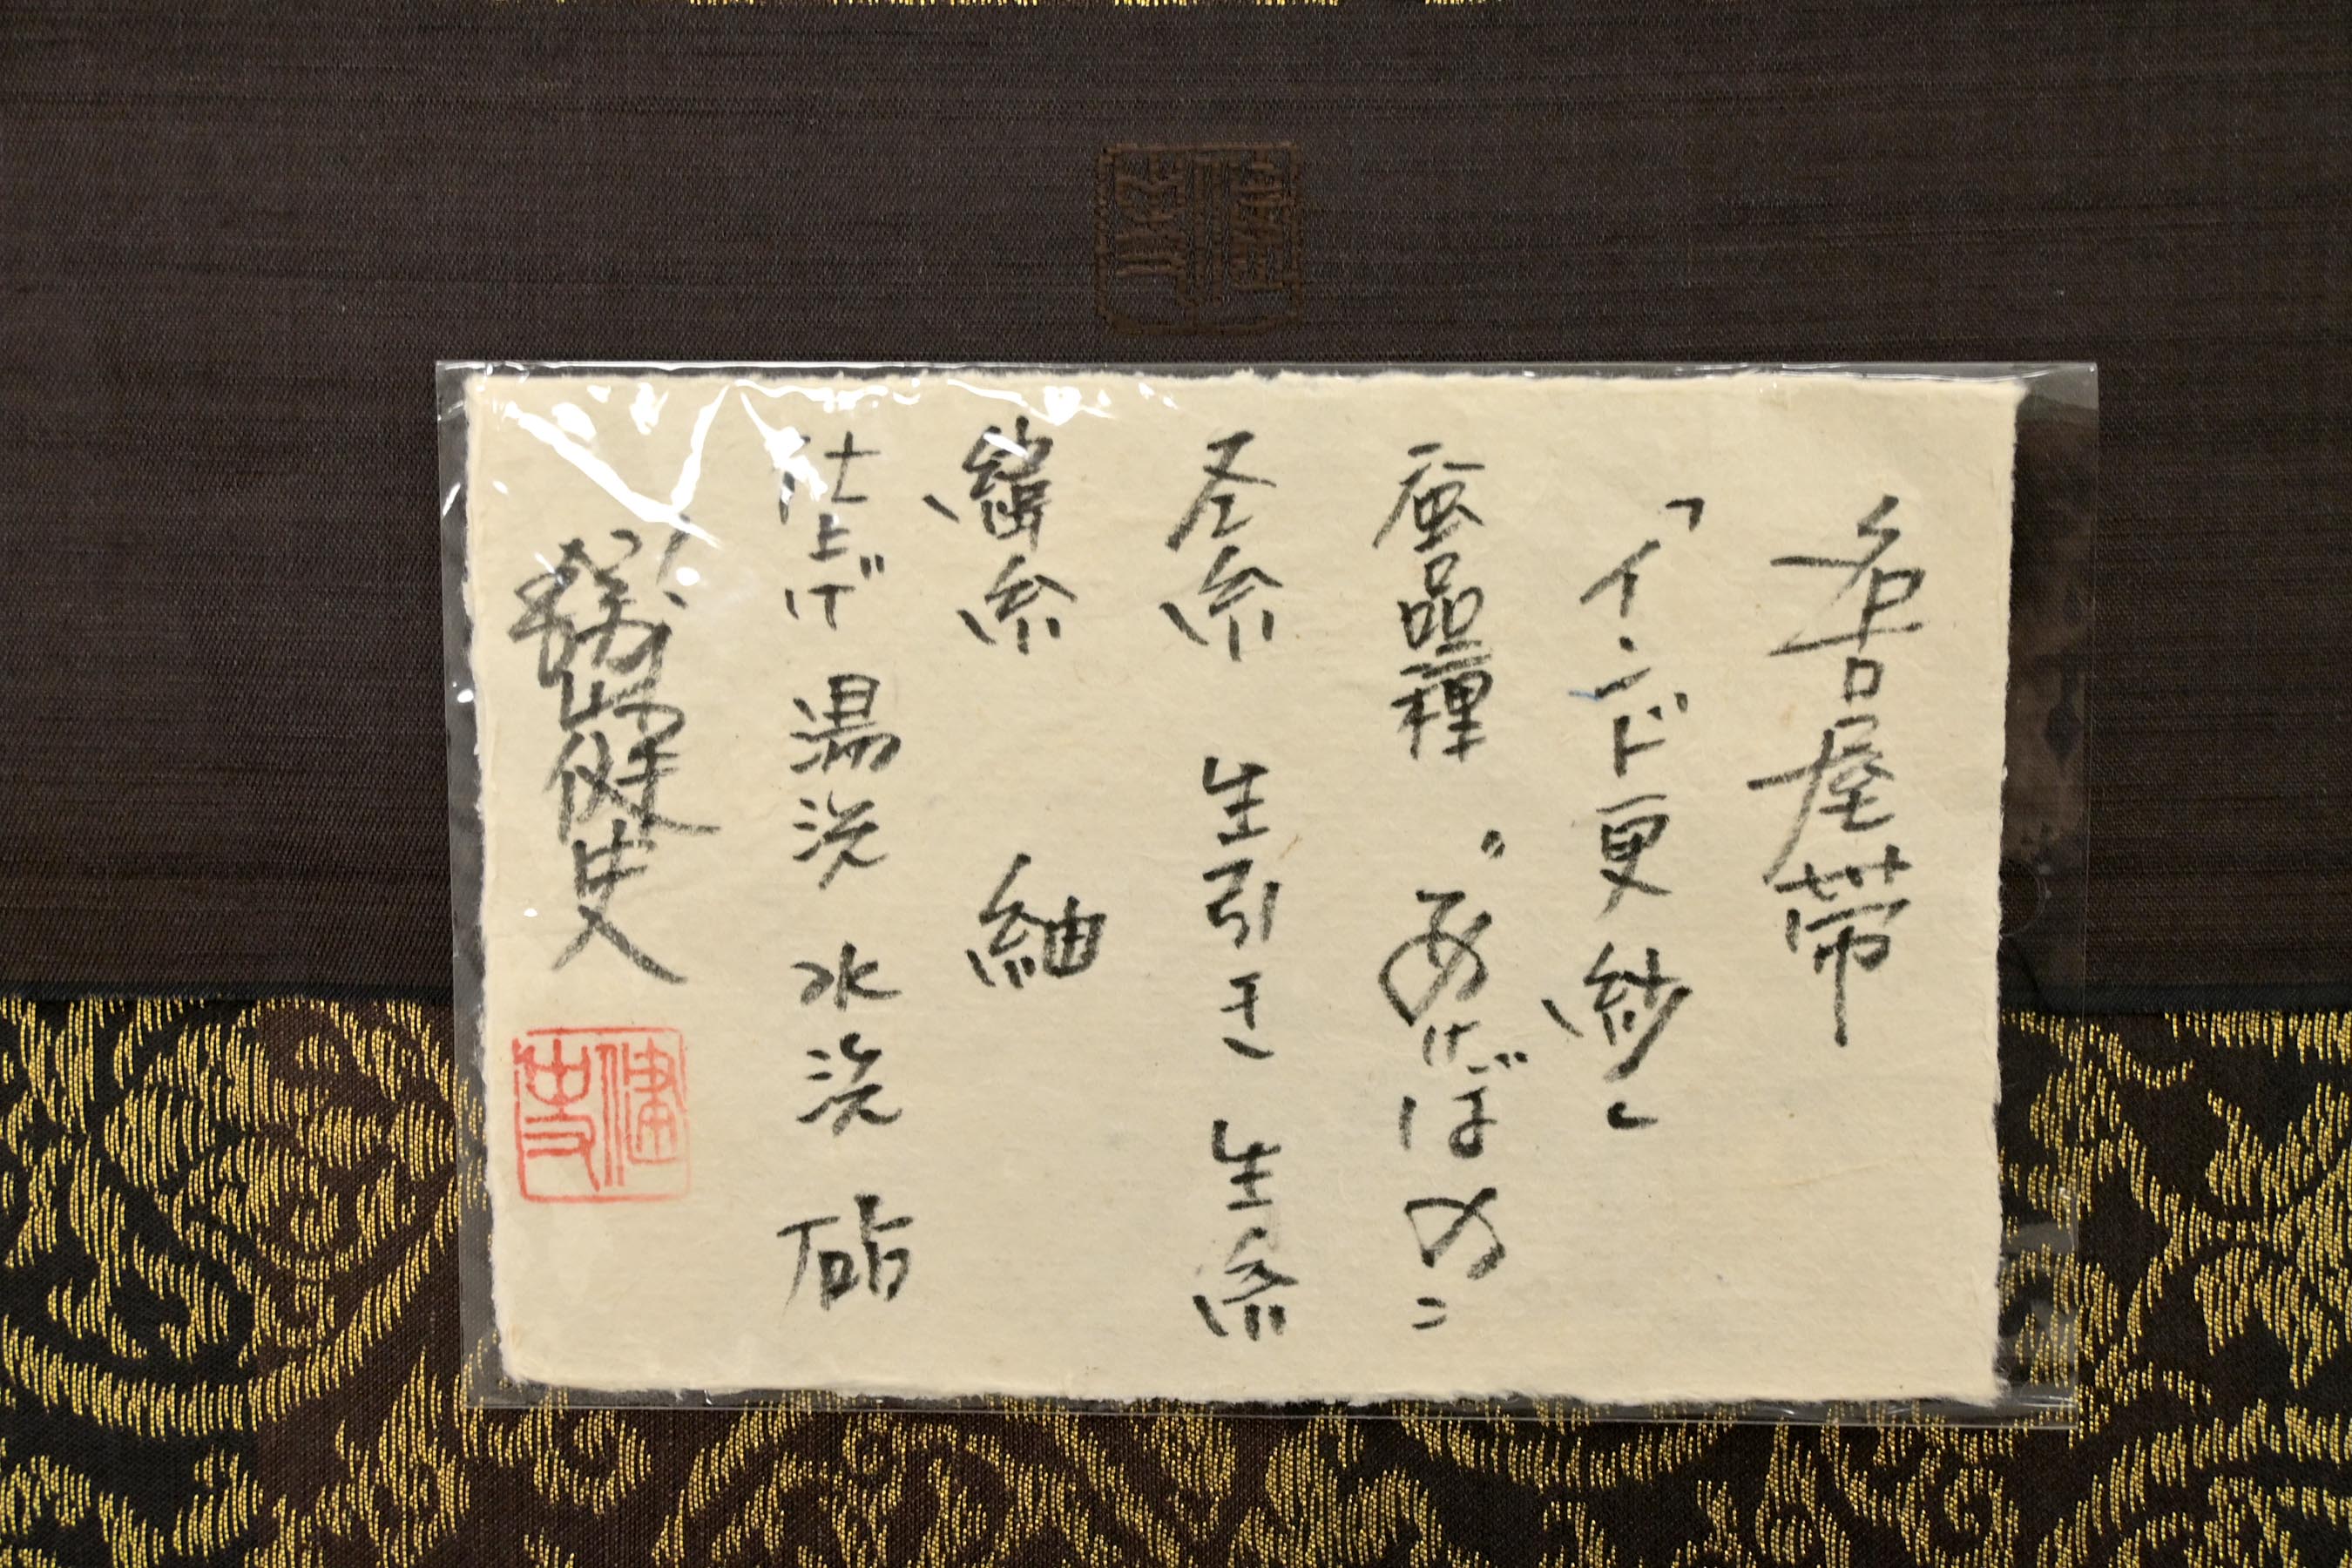 名古屋帯
「インド更紗」
蚕品種 〝あけぼの〟
圣糸 生引き 生糸
緯糸 紬
仕上げ 湯洗 水洗 砧
勝山健史
健史